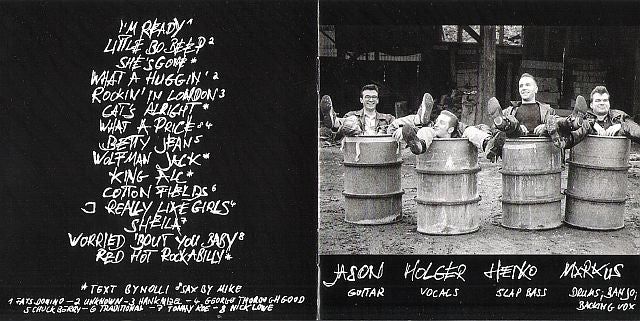 I'M READY 1
LITTLE BO BEEP 2
SHE'S GONE *
WHAT A HUGGIN' 2
ROCKIN' IN LONDON 3
CAT'S ALRIGHT *
WHAT A PRICE 4
BETTY JEAN 5
WOLFMAN JACK *
KING ALC *
COTTON FIELDS 6
I REALLY LIKE GIRLS 4
SHEILA 7
WORRIED 'BOUT YOU BABY 8
RED HOT ROCKABILLY *
* TEXT BY NOLLI SAX BY MIKE
1 FATS DOMINO – 2 UNKNOWN – 3 HANK MIZEL – 4 GEORGE THOROUGHGOOD
5 CHUCK BERRY – 6 TRADITIONAL – 7 TOMMY ROE – 8 NICK LOWE
JASON HOLGER HEIKO MARKUS
GUITAR VOCALS SLAP BASS DRUMS, BANJO,
BACKING VOX